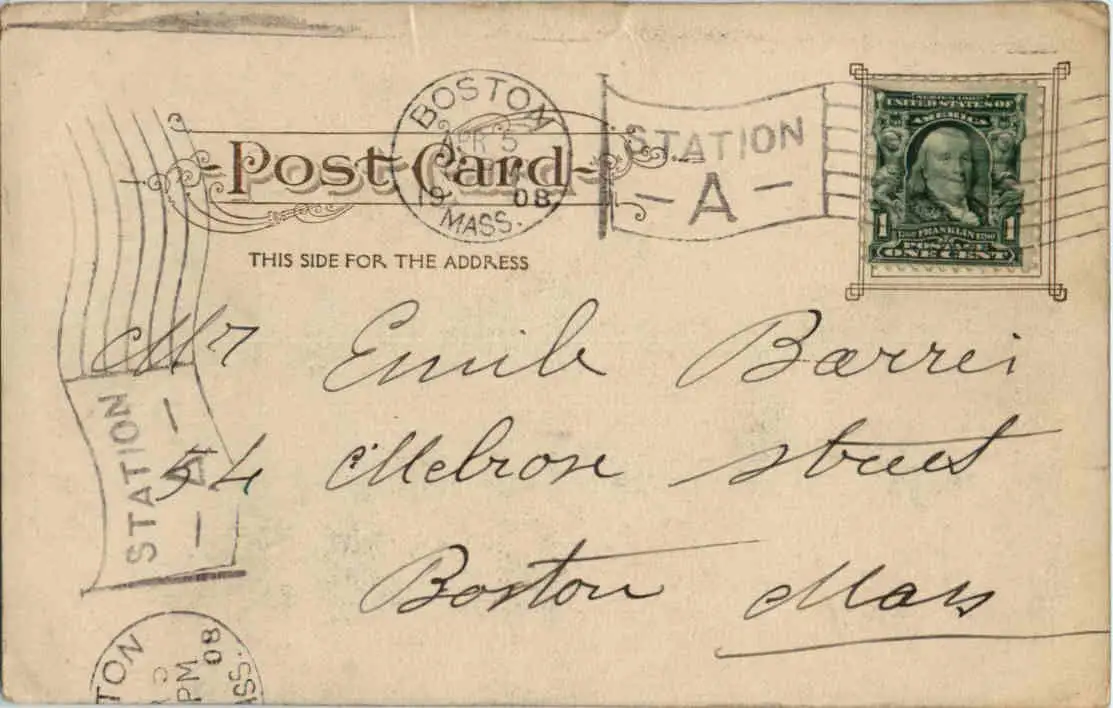 BOSTON
APR 5
1908
MASS.
STATION
A
SERIES 1902
UNITED STATES OF
AMERICA
1 1
FRANKLIN
POSTAGE
ONE CENT
Post Card
THIS SIDE FOR THE ADDRESS
Mr Emile Barrei
54 Melrose Street
Boston Mass
STATION
A
TON
08
PM
ASS.